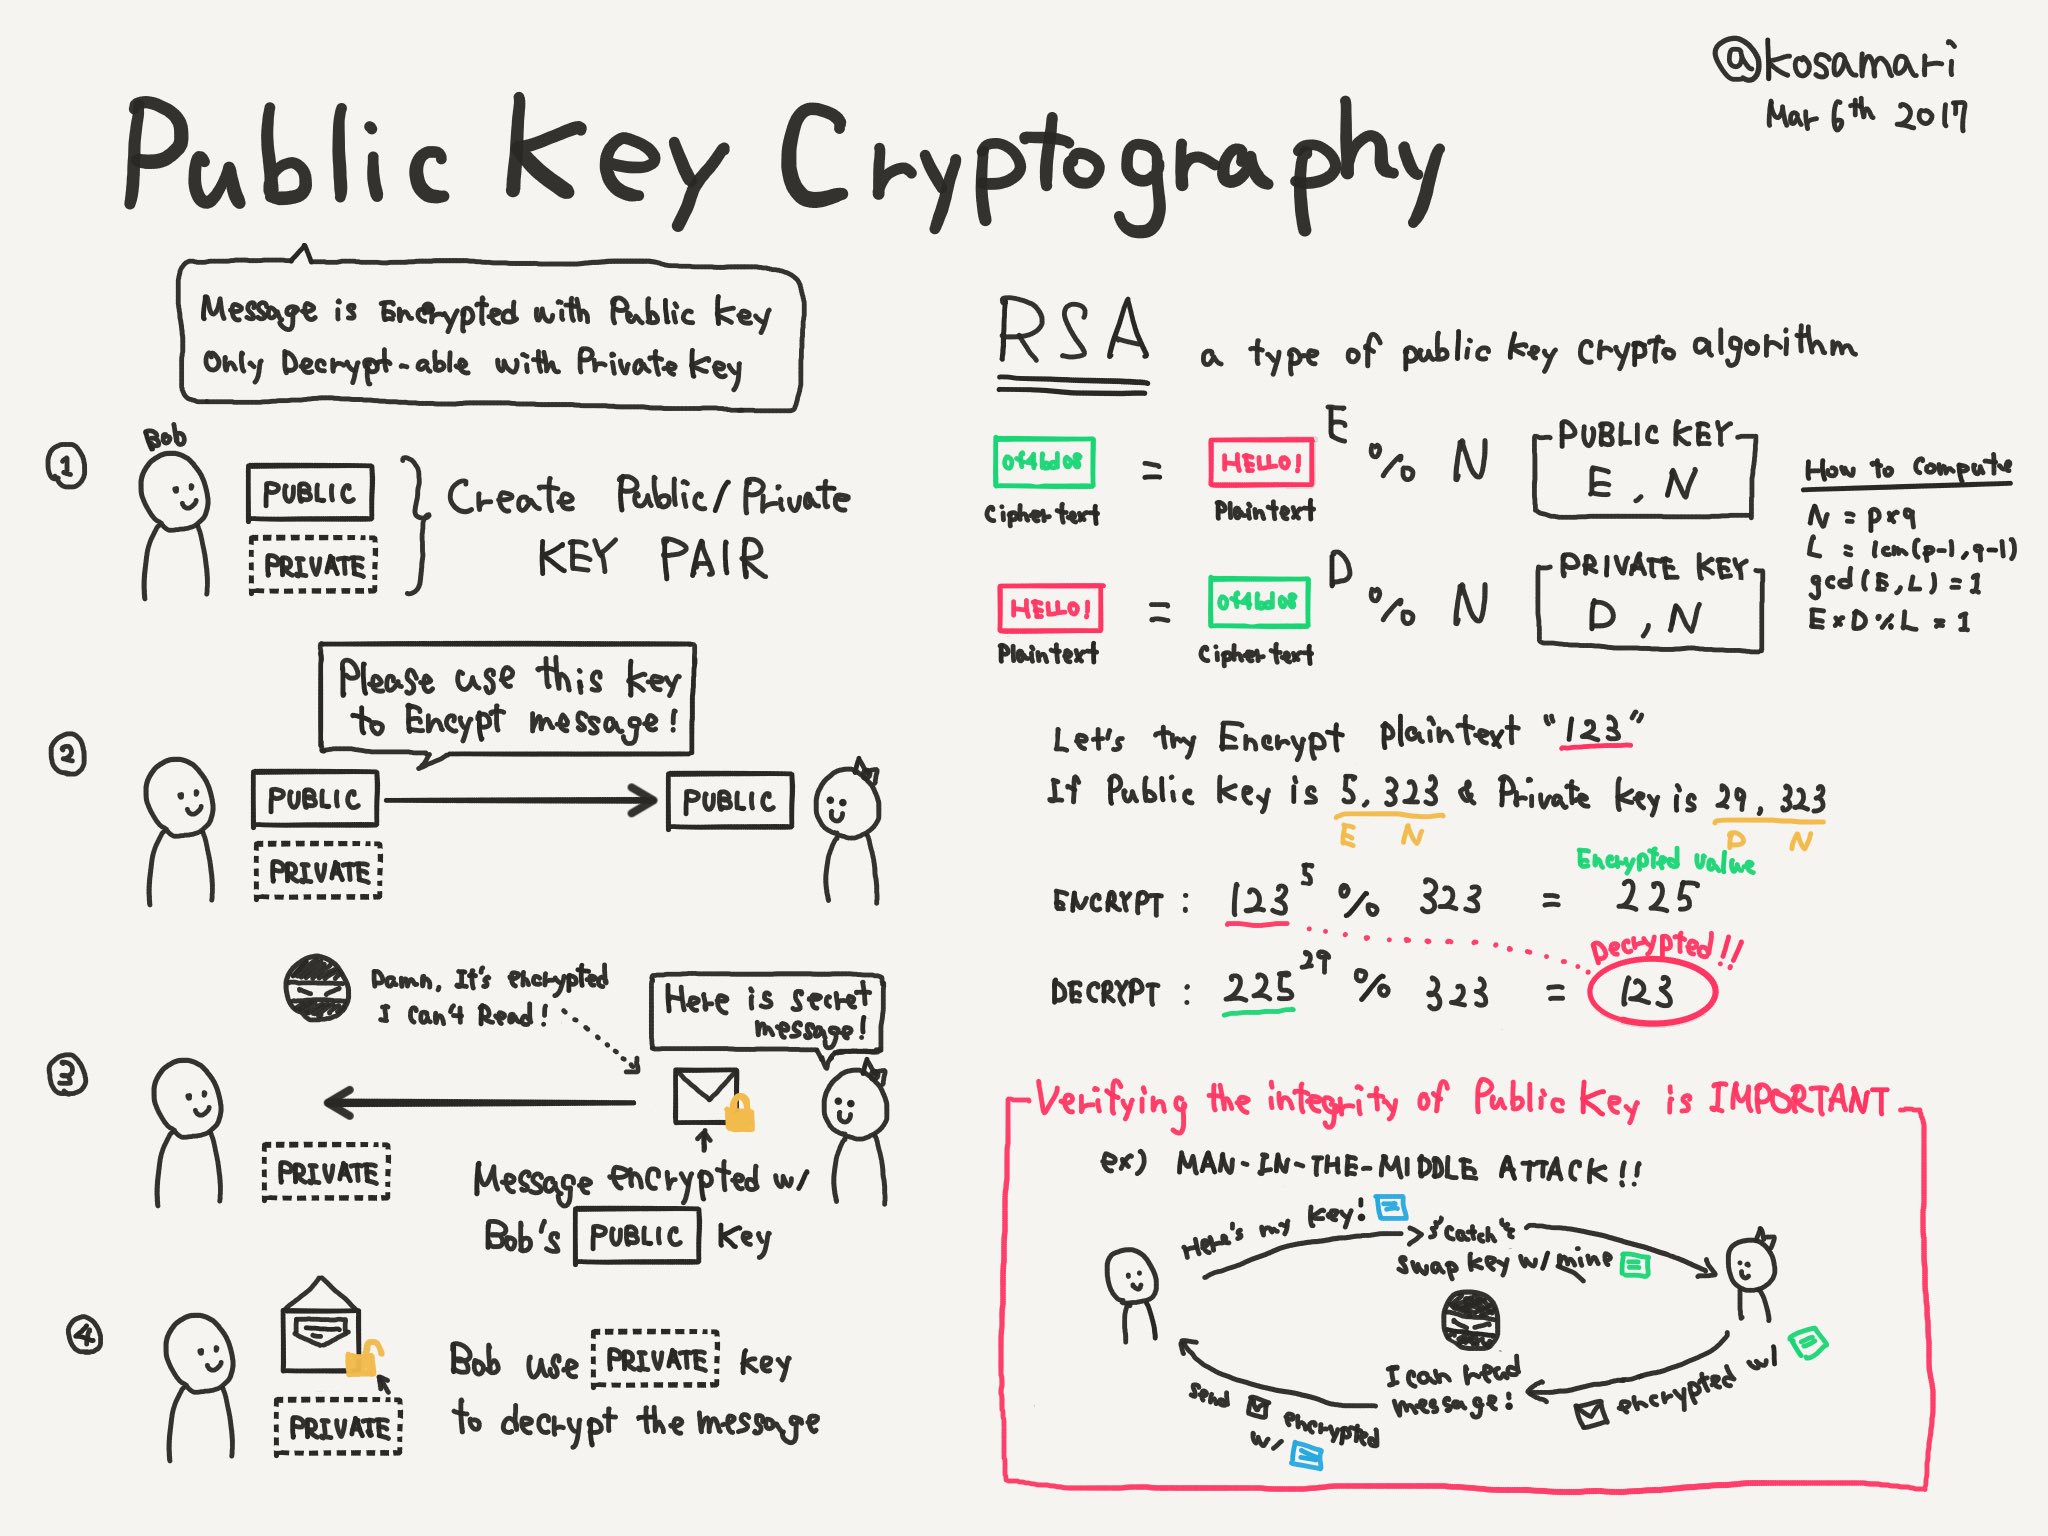 @kosamari
Mar 6th 2017
Public Key Cryptography
Message is Encrypted with Public Key
Only Decrypt-able with Private Key
1
Bob
PUBLIC
PRIVATE
Create Public/Private
KEY PAIR
2
Please use this key
to Encypt message!
PUBLIC
PUBLIC
PRIVATE
3
Damn, It's encrypted
I can't Read!
Here is secret
message!
PRIVATE
Message encrypted w/
Bob's PUBLIC Key
4
PRIVATE
Bob use PRIVATE key
to decrypt the message
RSA a type of public key crypto algorithm
0f4bd08 = HELLO! E % N
Ciphertext Plaintext
PUBLIC KEY
E, N
HELLO! = 0f4bd08 D % N
Plaintext Ciphertext
PRIVATE KEY
D, N
How to Compute
N = p×q
L = lcm(p-1, q-1)
gcd(E, L) = 1
E×D%L = 1
Let's try Encrypt plaintext "123"
If Public Key is 5, 323 & Private key is 29, 323
E N D N
Encrypted value
ENCRYPT : 123 5 % 323 = 225
Decrypted!!
DECRYPT : 225 29 % 323 = 123
Verifying the integrity of Public Key is IMPORTANT
ex) MAN-IN-THE-MIDDLE ATTACK!!
Here's my key!
Catch
swap key w/ mine
I can read
message!
encrypted w/
send encrypted
w/